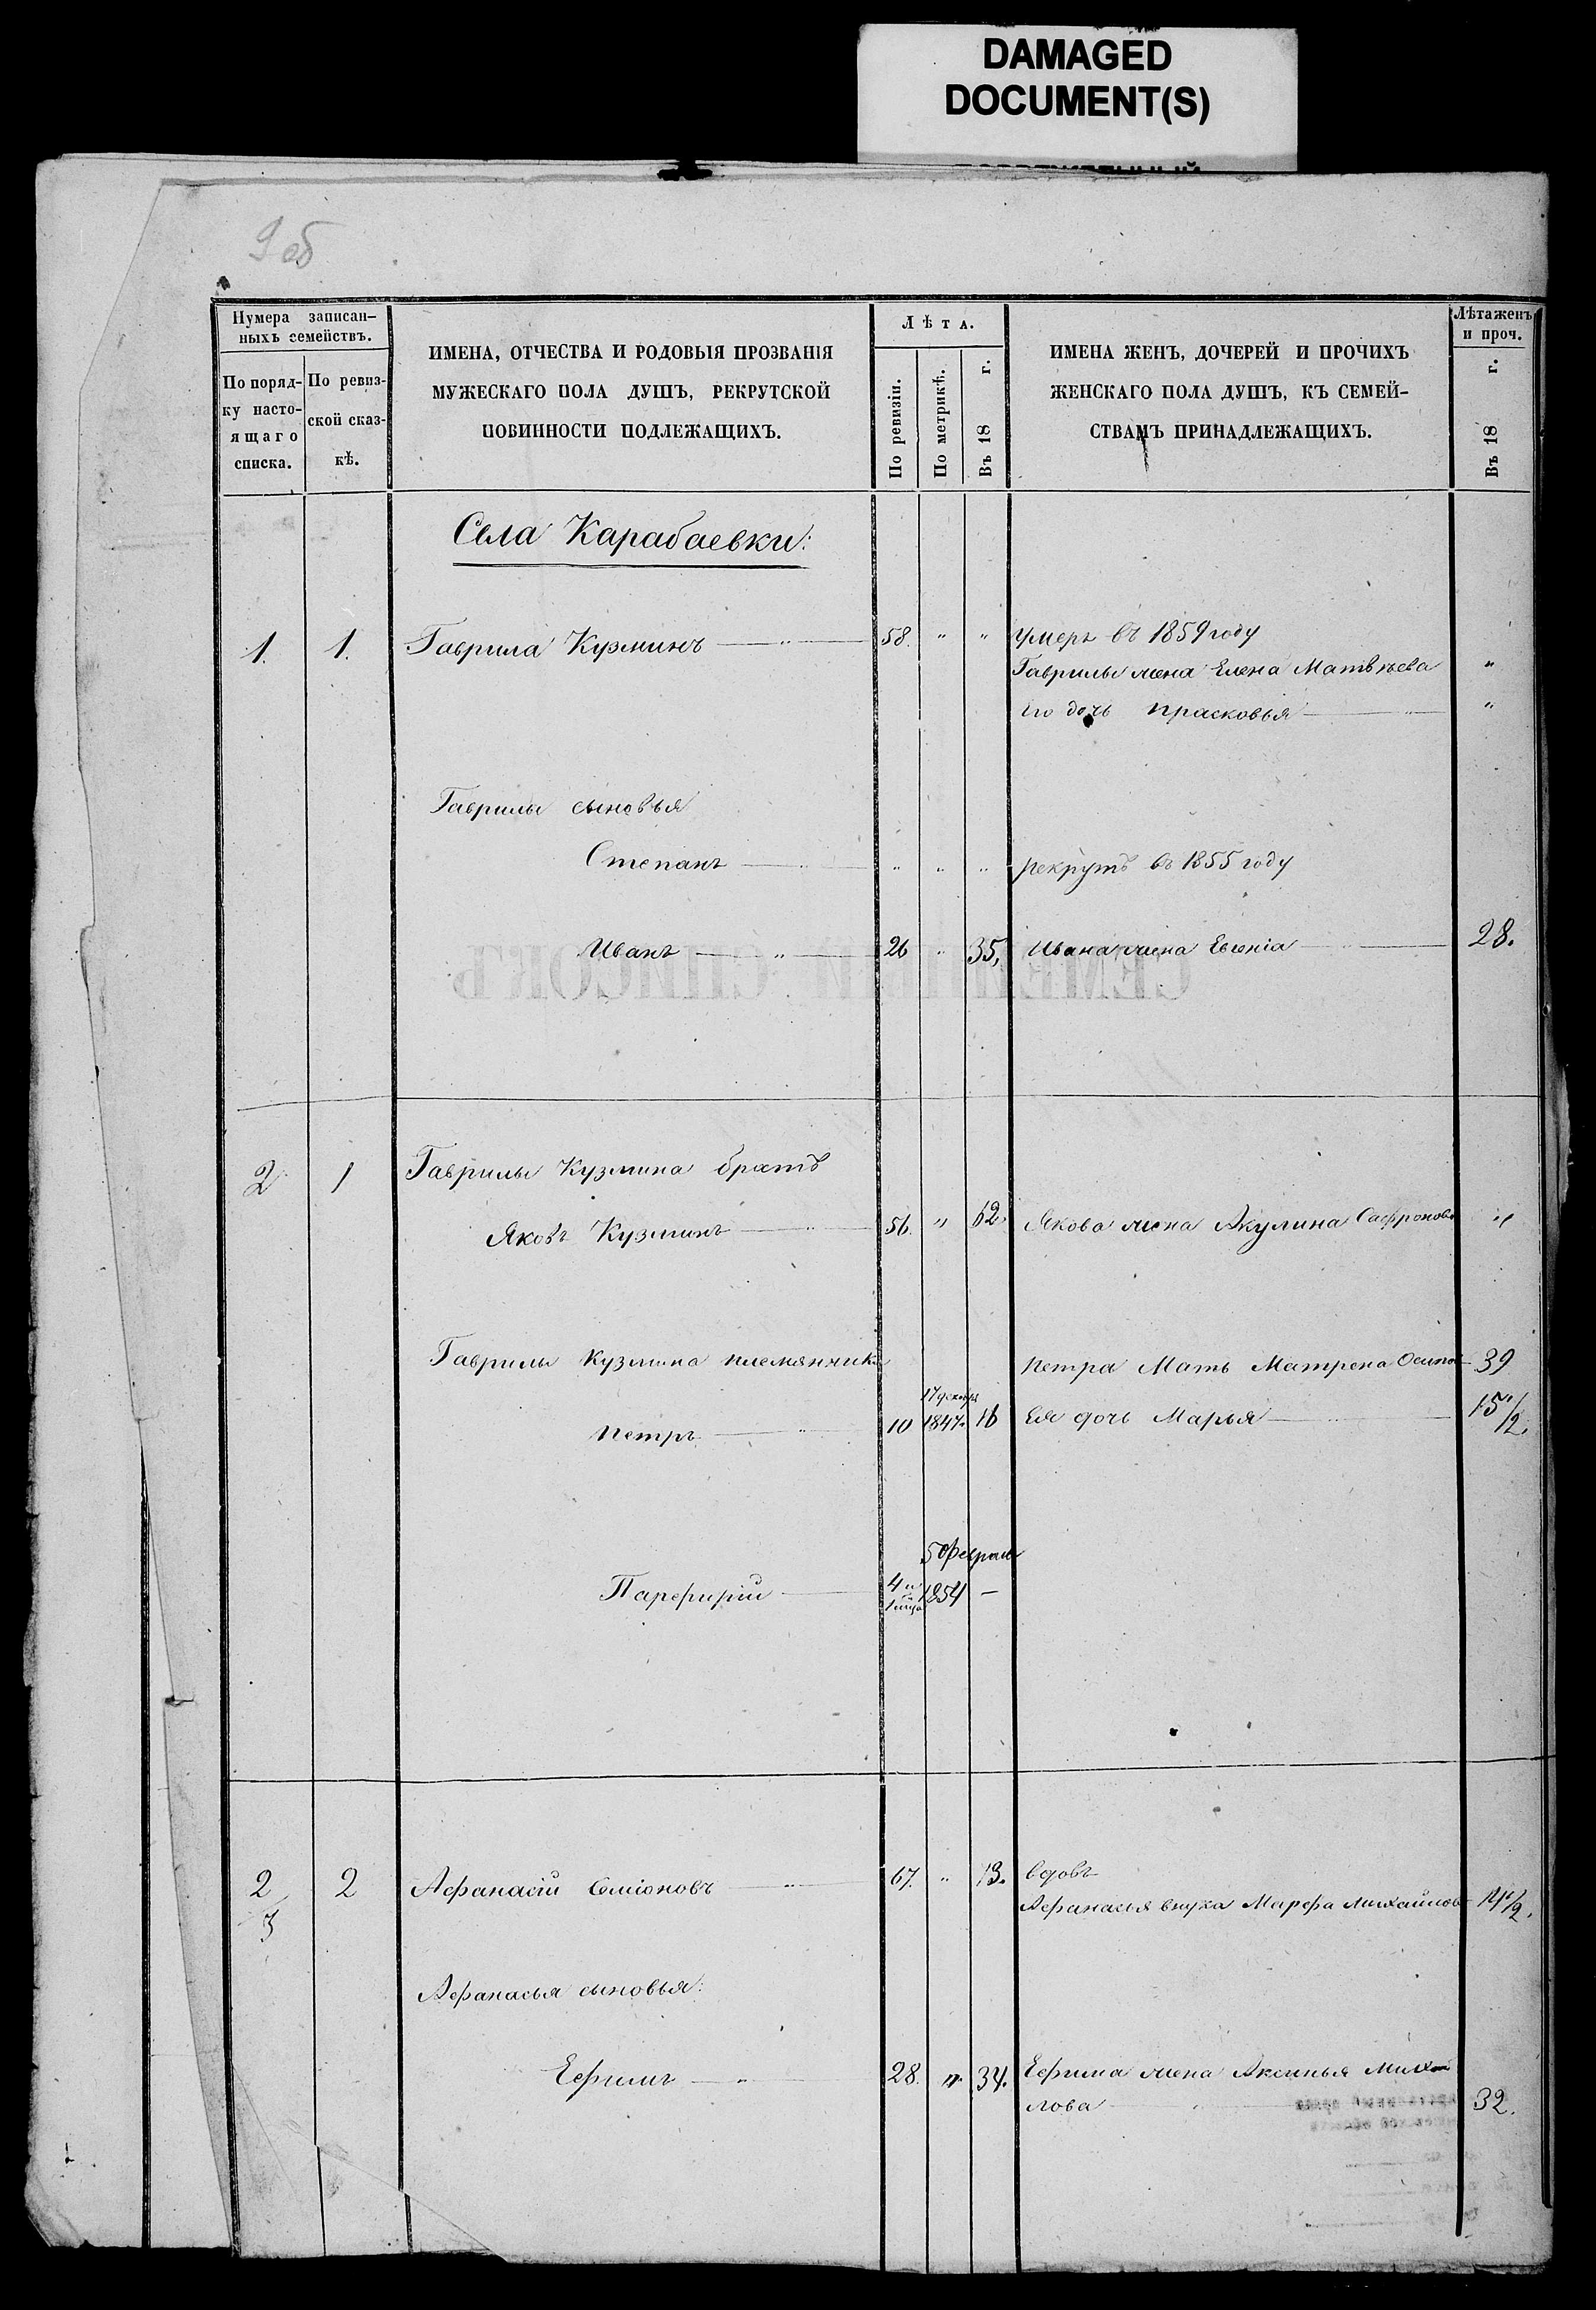 DAMAGED
DOCUMENT(S)
9 об
Нумера записан-
ныхъ семействъ.
По поряд-
ку насто-
ящаго
списка.
По ревиз-
ской сказ-
кѣ.
ИМЕНА, ОТЧЕСТВА И РОДОВЫЯ ПРОЗВАНІЯ
МУЖЕСКАГО ПОЛА ДУШЪ, РЕКРУТСКОЙ
ПОВИННОСТИ ПОДЛЕЖАЩИХЪ.
Лѣта.
По ревизіи.
По метрикѣ.
Въ 18 г.
ИМЕНА ЖЕНЪ, ДОЧЕРЕЙ И ПРОЧИХЪ
ЖЕНСКАГО ПОЛА ДУШЪ, КЪ СЕМЕЙ-
СТВАМЪ ПРИНАДЛЕЖАЩИХЪ.
Лѣта женъ
и проч.
Въ 18 г.
Села Карабаевки:
1. 1. Гаврила Кузминъ — " — 58. " " умеръ въ 1859 году
Гаврилы жена Елена Матвѣева "
его дочь Прасковья — " "
Гаврилы сыновья
Степанъ — " " " " рекрутъ въ 1855 году
Иванъ — " — 26 " 35, Ивана жена Евгенія — 28.
2 1 Гаврилы Кузмина братъ
Яковъ Кузминъ — " 56. " 62. Якова жена Акулина Сафронова "
Гаврилы Кузмина племянники Петра Мать Матрена Осипо 39
17 декабря
Петръ — " 10 1847. 16 Ея дочь Марья — " — 15 1/2.
5 Февраля
Парфирій — 4 и 1854 —
2 2 Афанасій Семіоновъ — " 67. " 73. вдовъ
3 Афанасья внука Марфа Михайлов 14 1/2.
Афанасья сыновья:
Ефимъ — " 28. " 34. Ефима жена Аксинья Михай
лова — " 32.